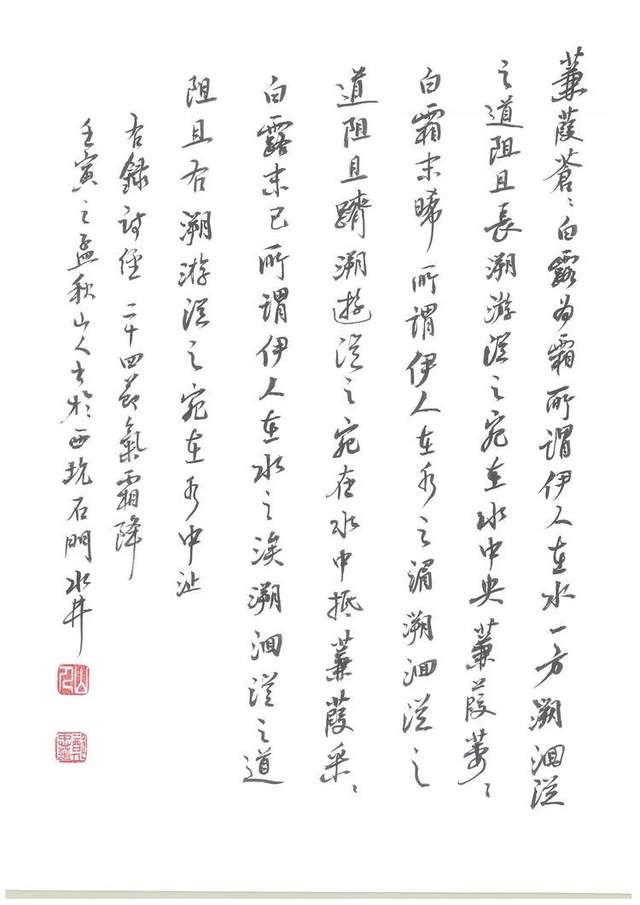 蒹葭蒼〻白露為霜所謂伊人在水一方溯洄從
之道阻且長溯游從之宛在水中央蒹葭萋〻
白霜未晞所謂伊人在水之湄溯洄從之
道阻且躋溯遊從之宛在水中抵蒹葭采〻
白露未已所謂伊人在水之涘溯洄從之道
阻且右溯游從之宛在水中沚
右錄詩經二十四節氣霜降
壬寅之孟秋山人書於西坑石門水井
山人